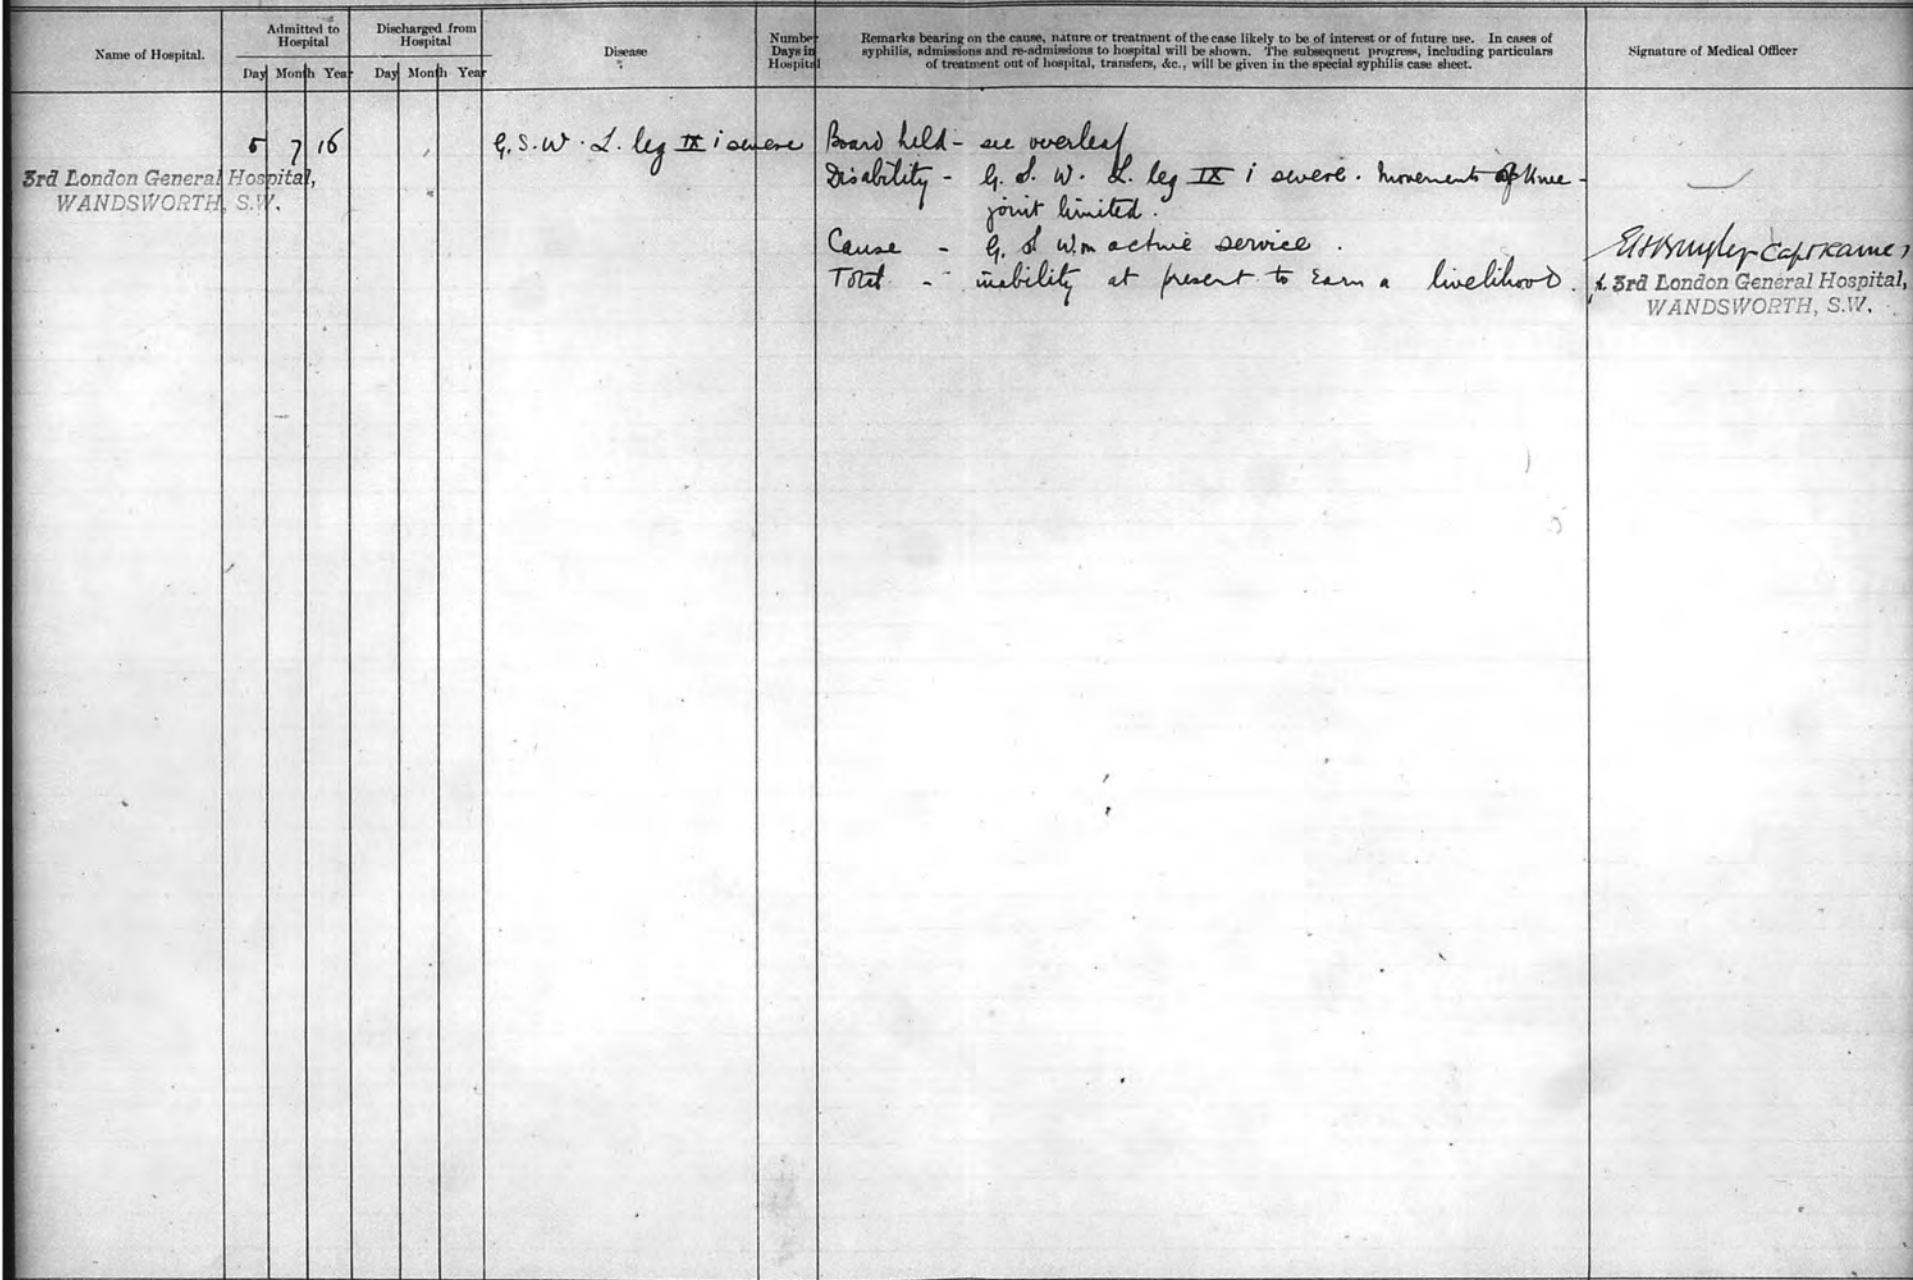 Name of Hospital.
Admitted to
Hospital
Day Month Year
Discharged from
Hospital
Day Month Year
Disease
Number
Days in
Hospital
Remarks bearing on the cause, nature or treatment of the case likely to be of interest or of future use. In cases of
syphilis, admissions and re-admissions to hospital will be shown. The subsequent progress, including particulars
of treatment out of hospital, transfers, &c., will be given in the special syphilis case sheet.
Signature of Medical Officer
3rd London General Hospital,
WANDSWORTH, S.W.
5 7 16
G.S.W. L. leg IX i severe
Board held - see overleaf
Disability - G. S. W. L. leg IX i severe. Movements of Knee-
joint limited.
Cause - G S W. on active service.
Total - inability at present to earn a livelihood.
Capt RAMC
3rd London General Hospital,
WANDSWORTH, S.W.